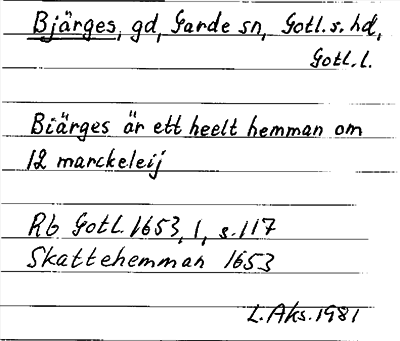 Bjärges, gd, Garde sn, Gotl. s. hd,
Gotl. l.
Biärges är ett heelt hemman om
12 marckeleij
Rb Gotl. 1653, 1, s. 117
Skattehemman 1653
L. Aks. 1981